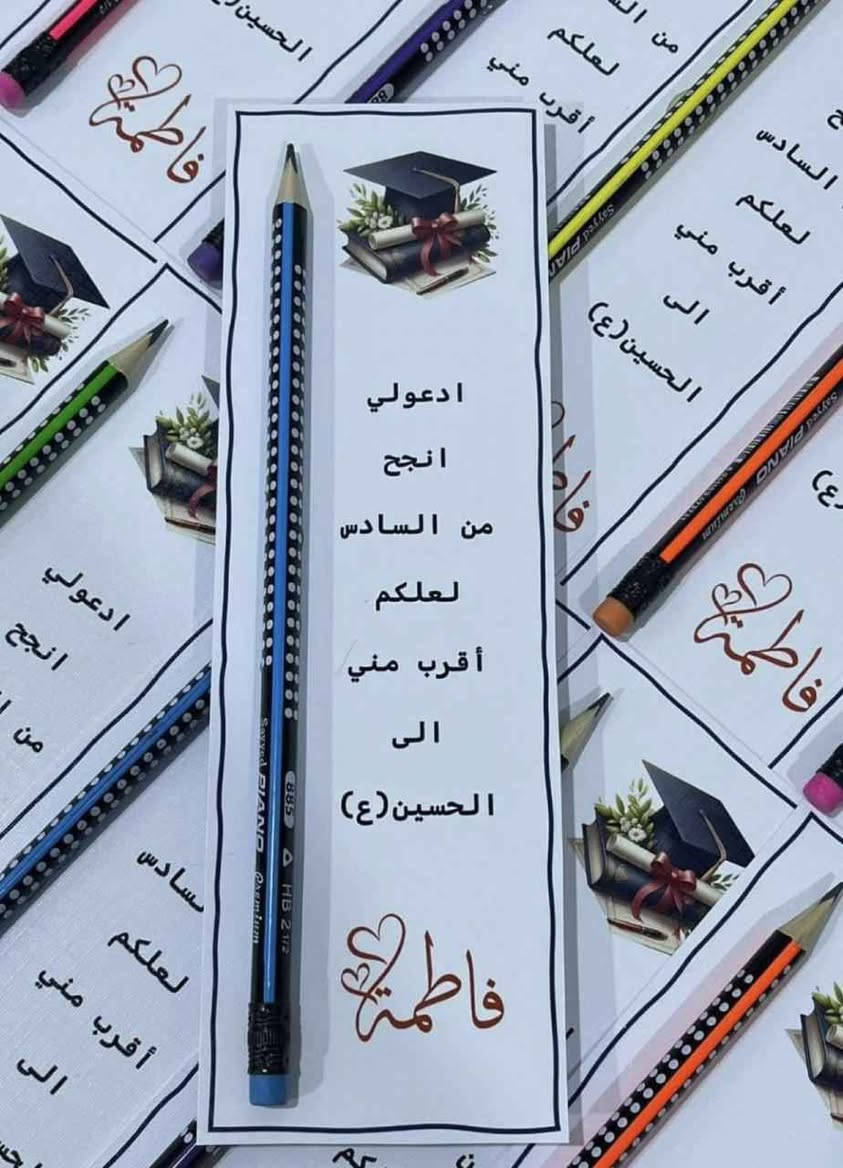 ادعولي
انجح
من السادس
لعلكم
أقرب مني
الى
الحسين(ع)
فاطمة
Sayyed PIANO Premium
885 HB 2 1/2
الحسين(ع)
فاطمة
من
لعلكم
أقرب مني
السادس
لعلكم
أقرب مني
الى
الحسين(ع)
Sayyed PIANO
Sayyed PIANO Premium
فاطمة
ادعولي
انجح
من
لعلكم
أقرب مني
الى